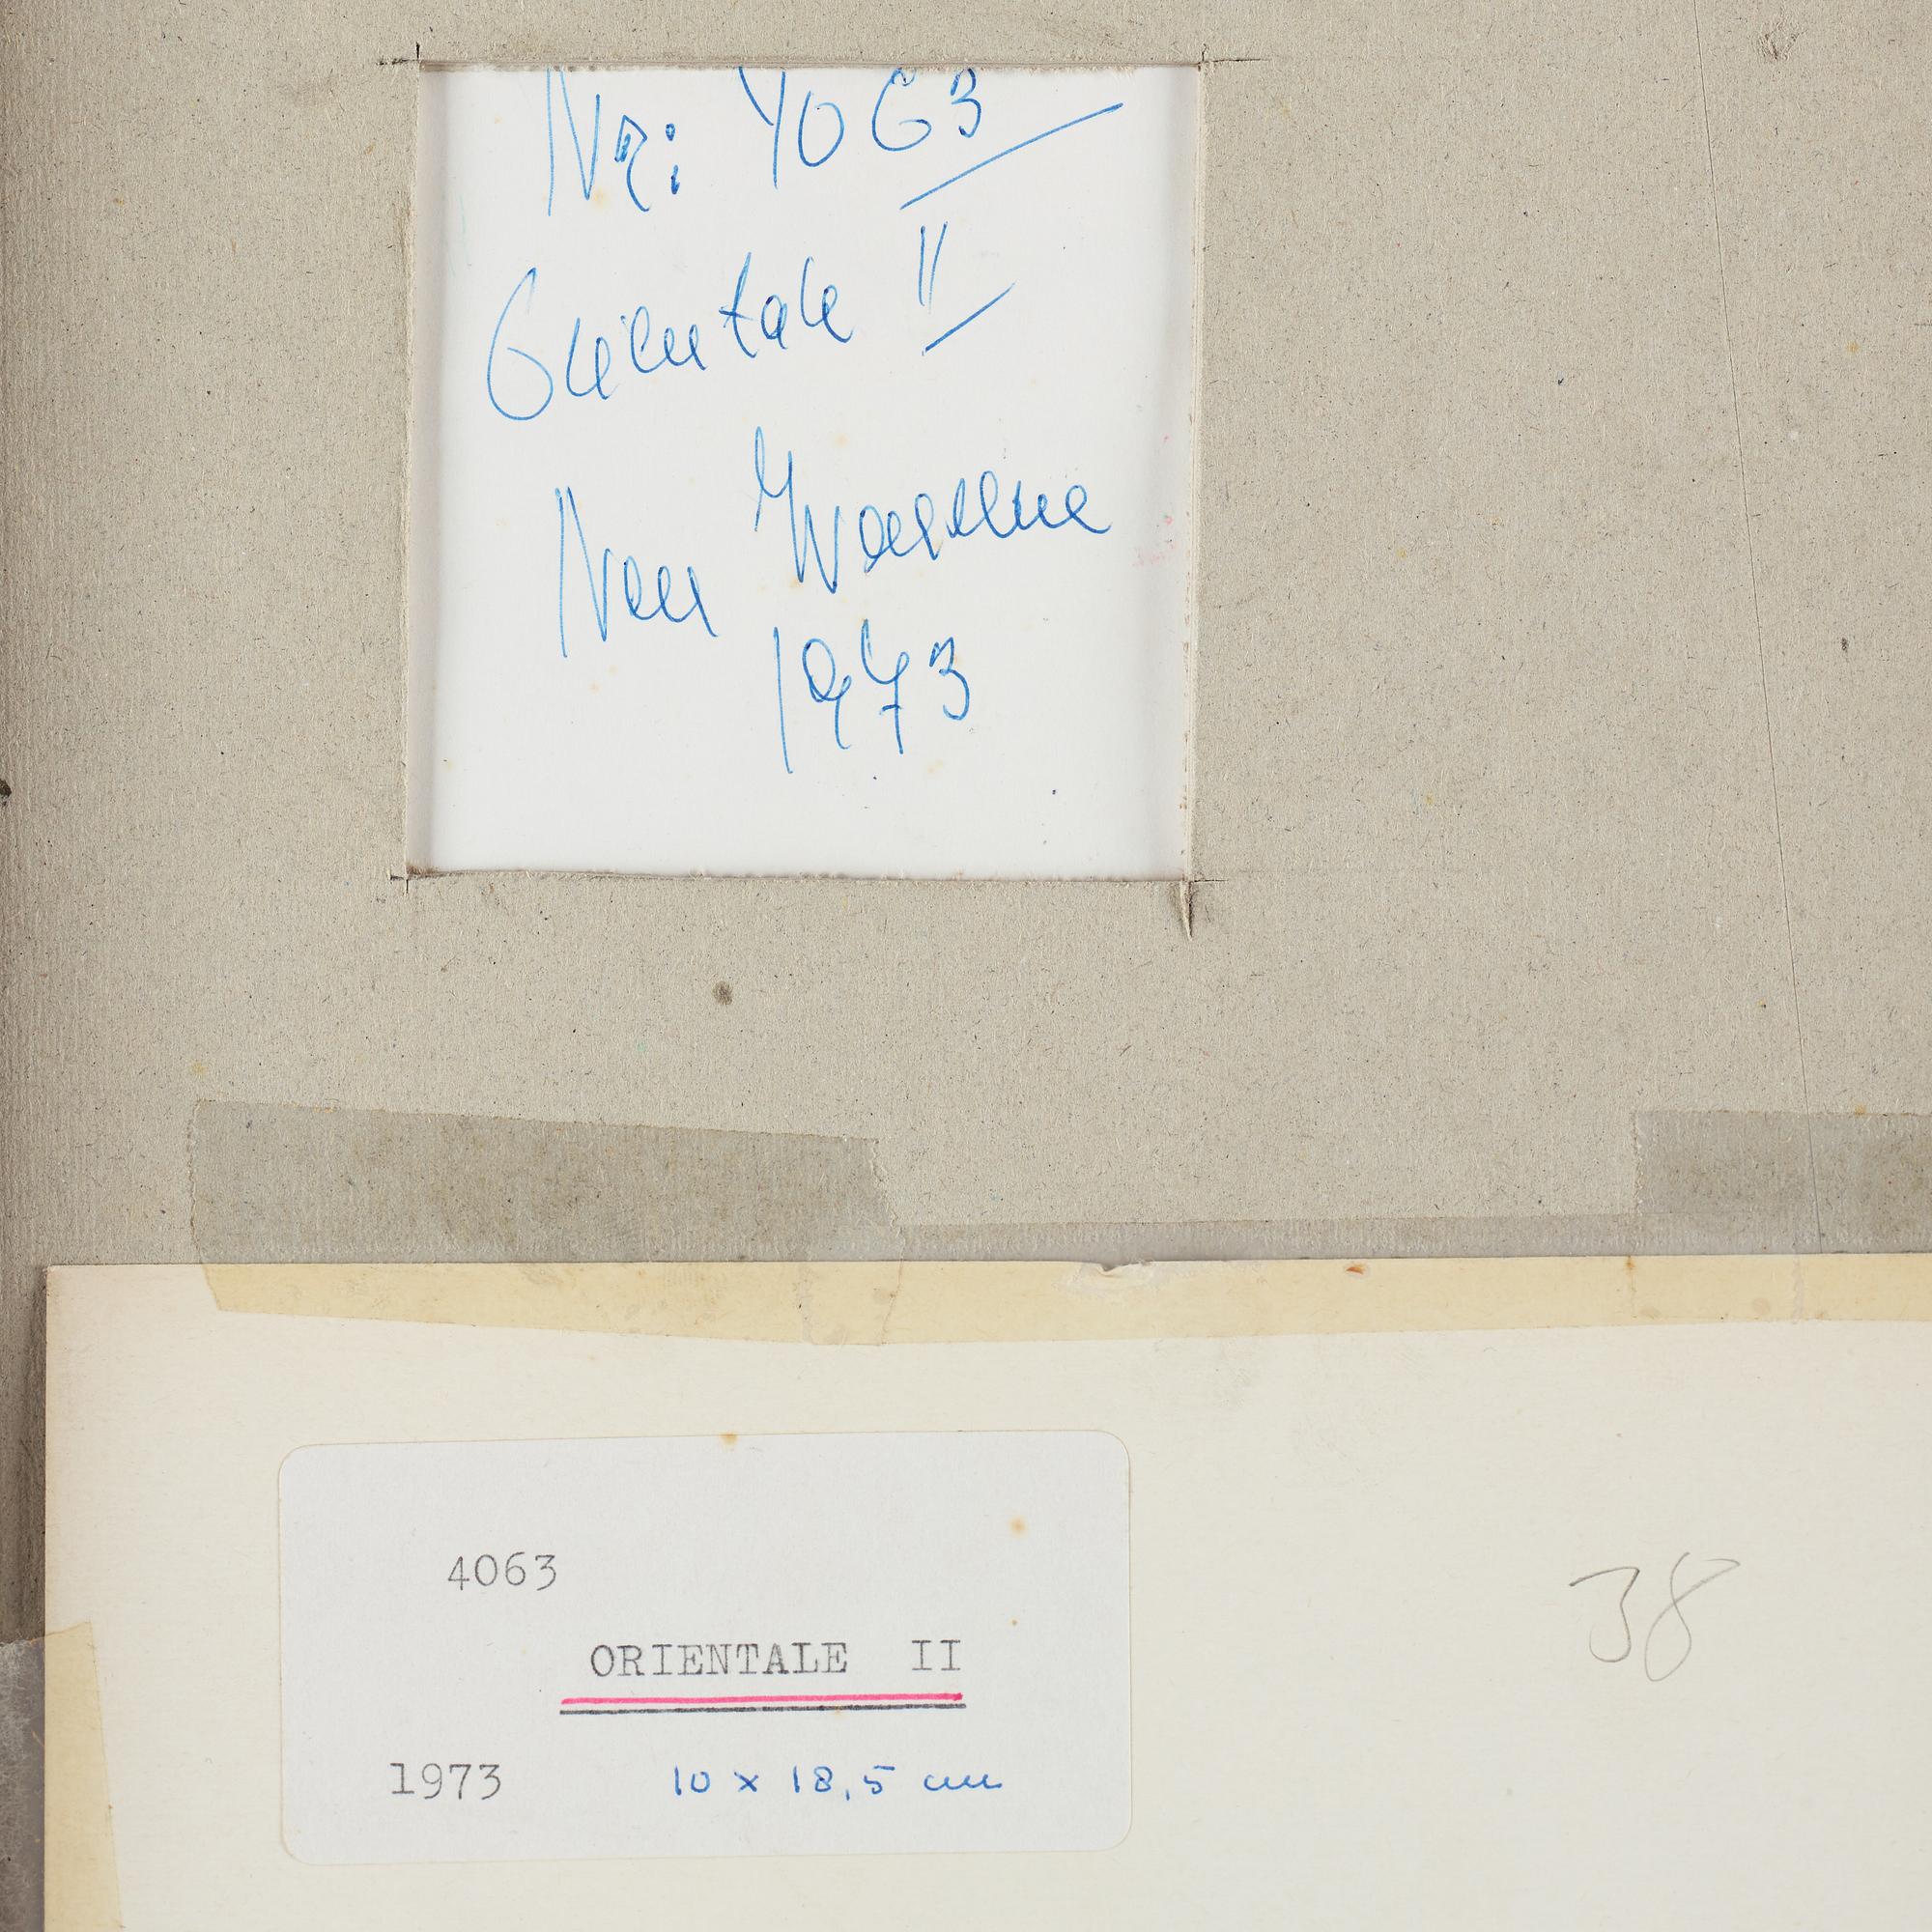 Nr: 4063
Orientale II
1973
4063
ORIENTALE II
1973 10 x 18,5 cm
38